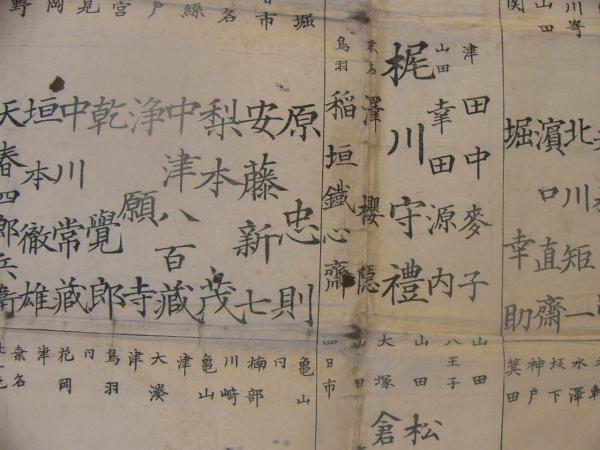 山田
関
北川矩一
濱口直齋
堀幸助
津
田中麥子
山田
幸田源内
梶川守禮
桑名
澤櫻隠
鳥羽
稲垣鐵心齋
堀
日市
名
戸
宮
見
岡
野
原忠則
安藤新七
梨本茂
中津八百藏
浄願寺
乾覺郎
中川常藏
垣本徹雄
天春四郎兵衛
水澤
坂下
神戸
箕田
山田
八王子
山田
大塚
四日市
亀山
楠部
川崎
亀山
津
大湊
津
鳥羽
花岡
津
桑名
松
倉